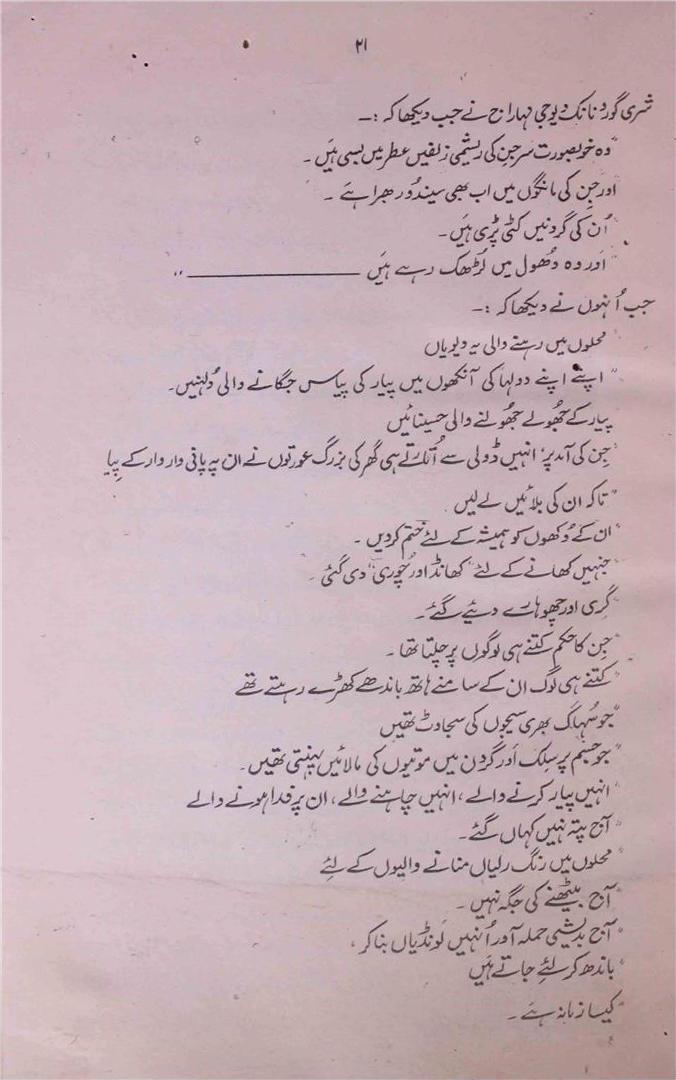 ۲۱
شری گورو نانک دیوجی مہاراج نے جب دیکھا کہ :۔
"وہ خوبصورت سر جن کی ریشمی زلفیں عطر میں بسی ہیں۔
اور جن کی مانگوں میں اب بھی سیندور بھرا ہے ۔
"اُن کی گردنیں کٹی پڑی ہیں۔
"اور وہ دُھول میں لُڑھک رہے ہیں ــــــــــــــــ"
جب اُنہوں نے دیکھا کہ :۔
"محلوں میں رہنے والی یہ دیویاں
"اپنے اپنے دولہا کی آنکھوں میں پیار کی پیاس جگانے والی دُلہنیں۔
پیار کے جُھولے جُھولنے والی حسینائیں
"جن کی آمد پر، انہیں ڈولی سے اُتارتے ہی گھر کی بزرگ عورتوں نے ان پہ پانی وار وار کے پِیا
"تاکہ ان کی بلائیں لے لیں
"ان کے دُکھوں کو ہمیشہ کے لئے ختم کر دیں ۔
"جنہیں کھانے کے لئے "کھانڈ اور چُوری" دی گئی ۔
"گِری اور چھوہارے دیئے گئے۔
"جن کا حکم کتنے ہی لوگوں پر چلتا تھا ۔
"کتنے ہی لوگ ان کے سامنے ہاتھ باندھے کھڑے رہتے تھے
"جو سُہاگ بھری سیجوں کی سجاوٹ تھیں
"جو جسم پر سِلک اور گردن میں موتیوں کی مالائیں پہنتی تھیں۔
"انہیں پیار کرنے والے ، انہیں چاہنے والے ، ان پر فدا ہونے والے
"آج پتہ نہیں کہاں گئے۔
"محلوں میں رنگ رلیاں منانے والیوں کے لئے
"آج بیٹھنے کی جگہ نہیں ۔
"آج بدیشی حملہ آور اُنہیں لونڈیاں بنا کر ،
"باندھ کر لئے جاتے ہیں
"کیسا زمانہ ہے ۔